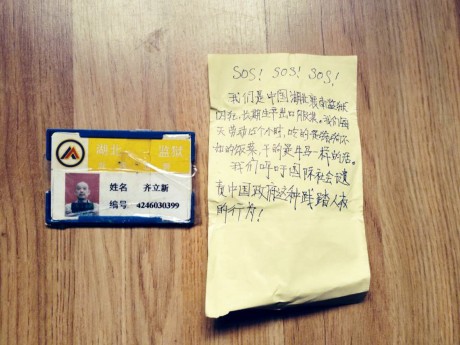 湖北 监狱
姓名 齐立新
编号 4246030399
SOS! SOS! SOS!
我们是中国湖北襄南监狱
囚犯,长期生产出口服装。我们每
天劳动15个小时,吃的是猪狗不
如的饭菜,干的是牛马一样的活。
我们呼吁国际社会谴
责中国政府这种践踏人权
的行为!